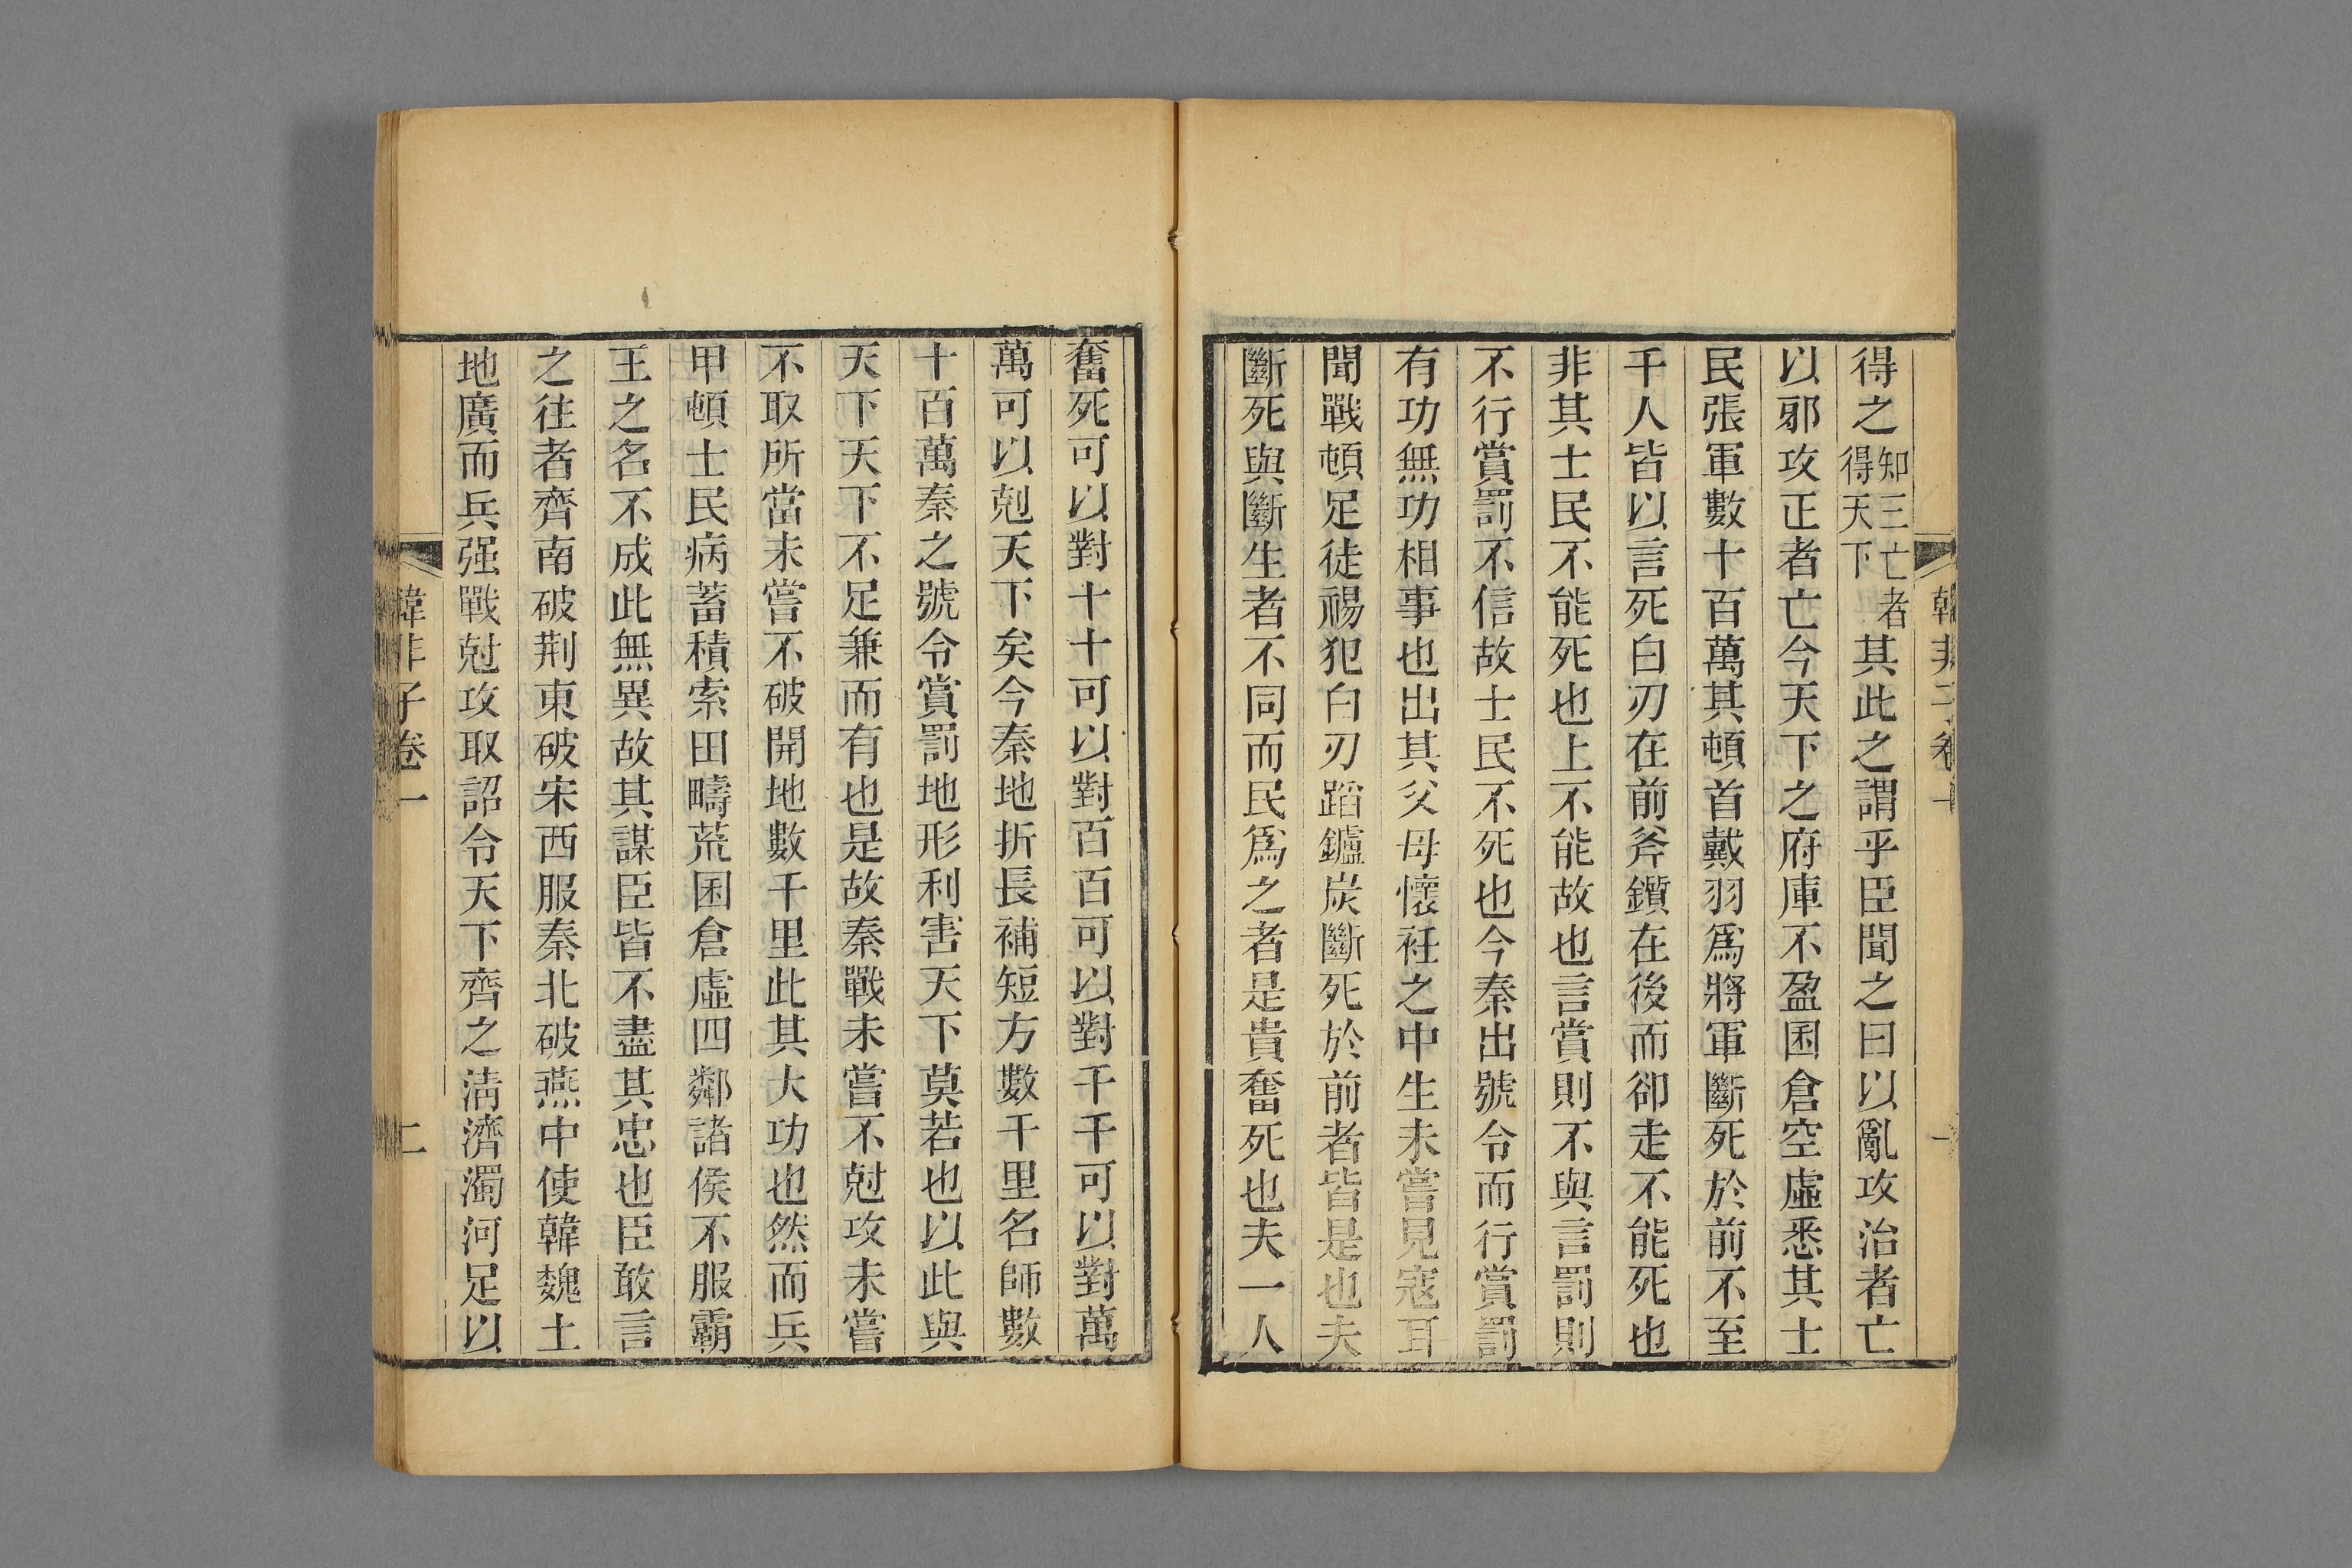 得之知三亡者得天下其此之謂乎臣聞之曰以亂攻治者亡
以邪攻正者亡今天下之府庫不盈囷倉空虛悉其士
民張軍數十百萬其頓首戴羽爲將軍斷死於前不至
千人皆以言死白刃在前斧鑕在後而卻走不能死也
非其士民不能死也上不能故也言賞則不與言罰則
不行賞罰不信故士民不死也今秦出號令而行賞罰
有功無功相事也出其父母懷衽之中生未嘗見寇耳
聞戰頓足徒裼犯白刃蹈鑪炭斷死於前者皆是也夫
斷死與斷生者不同而民爲之者是貴奮死也夫一人
奮死可以對十十可以對百百可以對千千可以對萬
萬可以剋天下矣今秦地折長補短方數千里名師數
十百萬秦之號令賞罰地形利害天下莫若也以此與
天下天下不足兼而有也是故秦戰未嘗不尅攻未嘗
不取所當未嘗不破開地數千里此其大功也然而兵
甲頓士民病蓄積索田疇荒囷倉虛四鄰諸侯不服霸
王之名不成此無異故其謀臣皆不盡其忠也臣敢言
之往者齊南破荆東破宋西服秦北破燕中使韓魏土
地廣而兵强戰尅攻取詔令天下齊之淸濟濁河足以
韓非子卷一
二